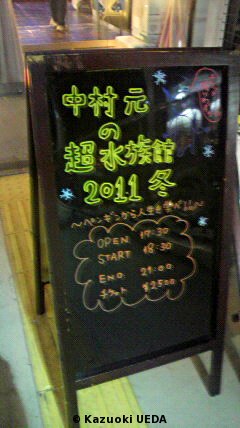 中村 元
の
超水族館
2011 冬
～ペンギンから人生を学べ!!～
OPEN 17:30
START 18:30
END. 21:00
チケット ¥2500
© Kazuoki UEDA